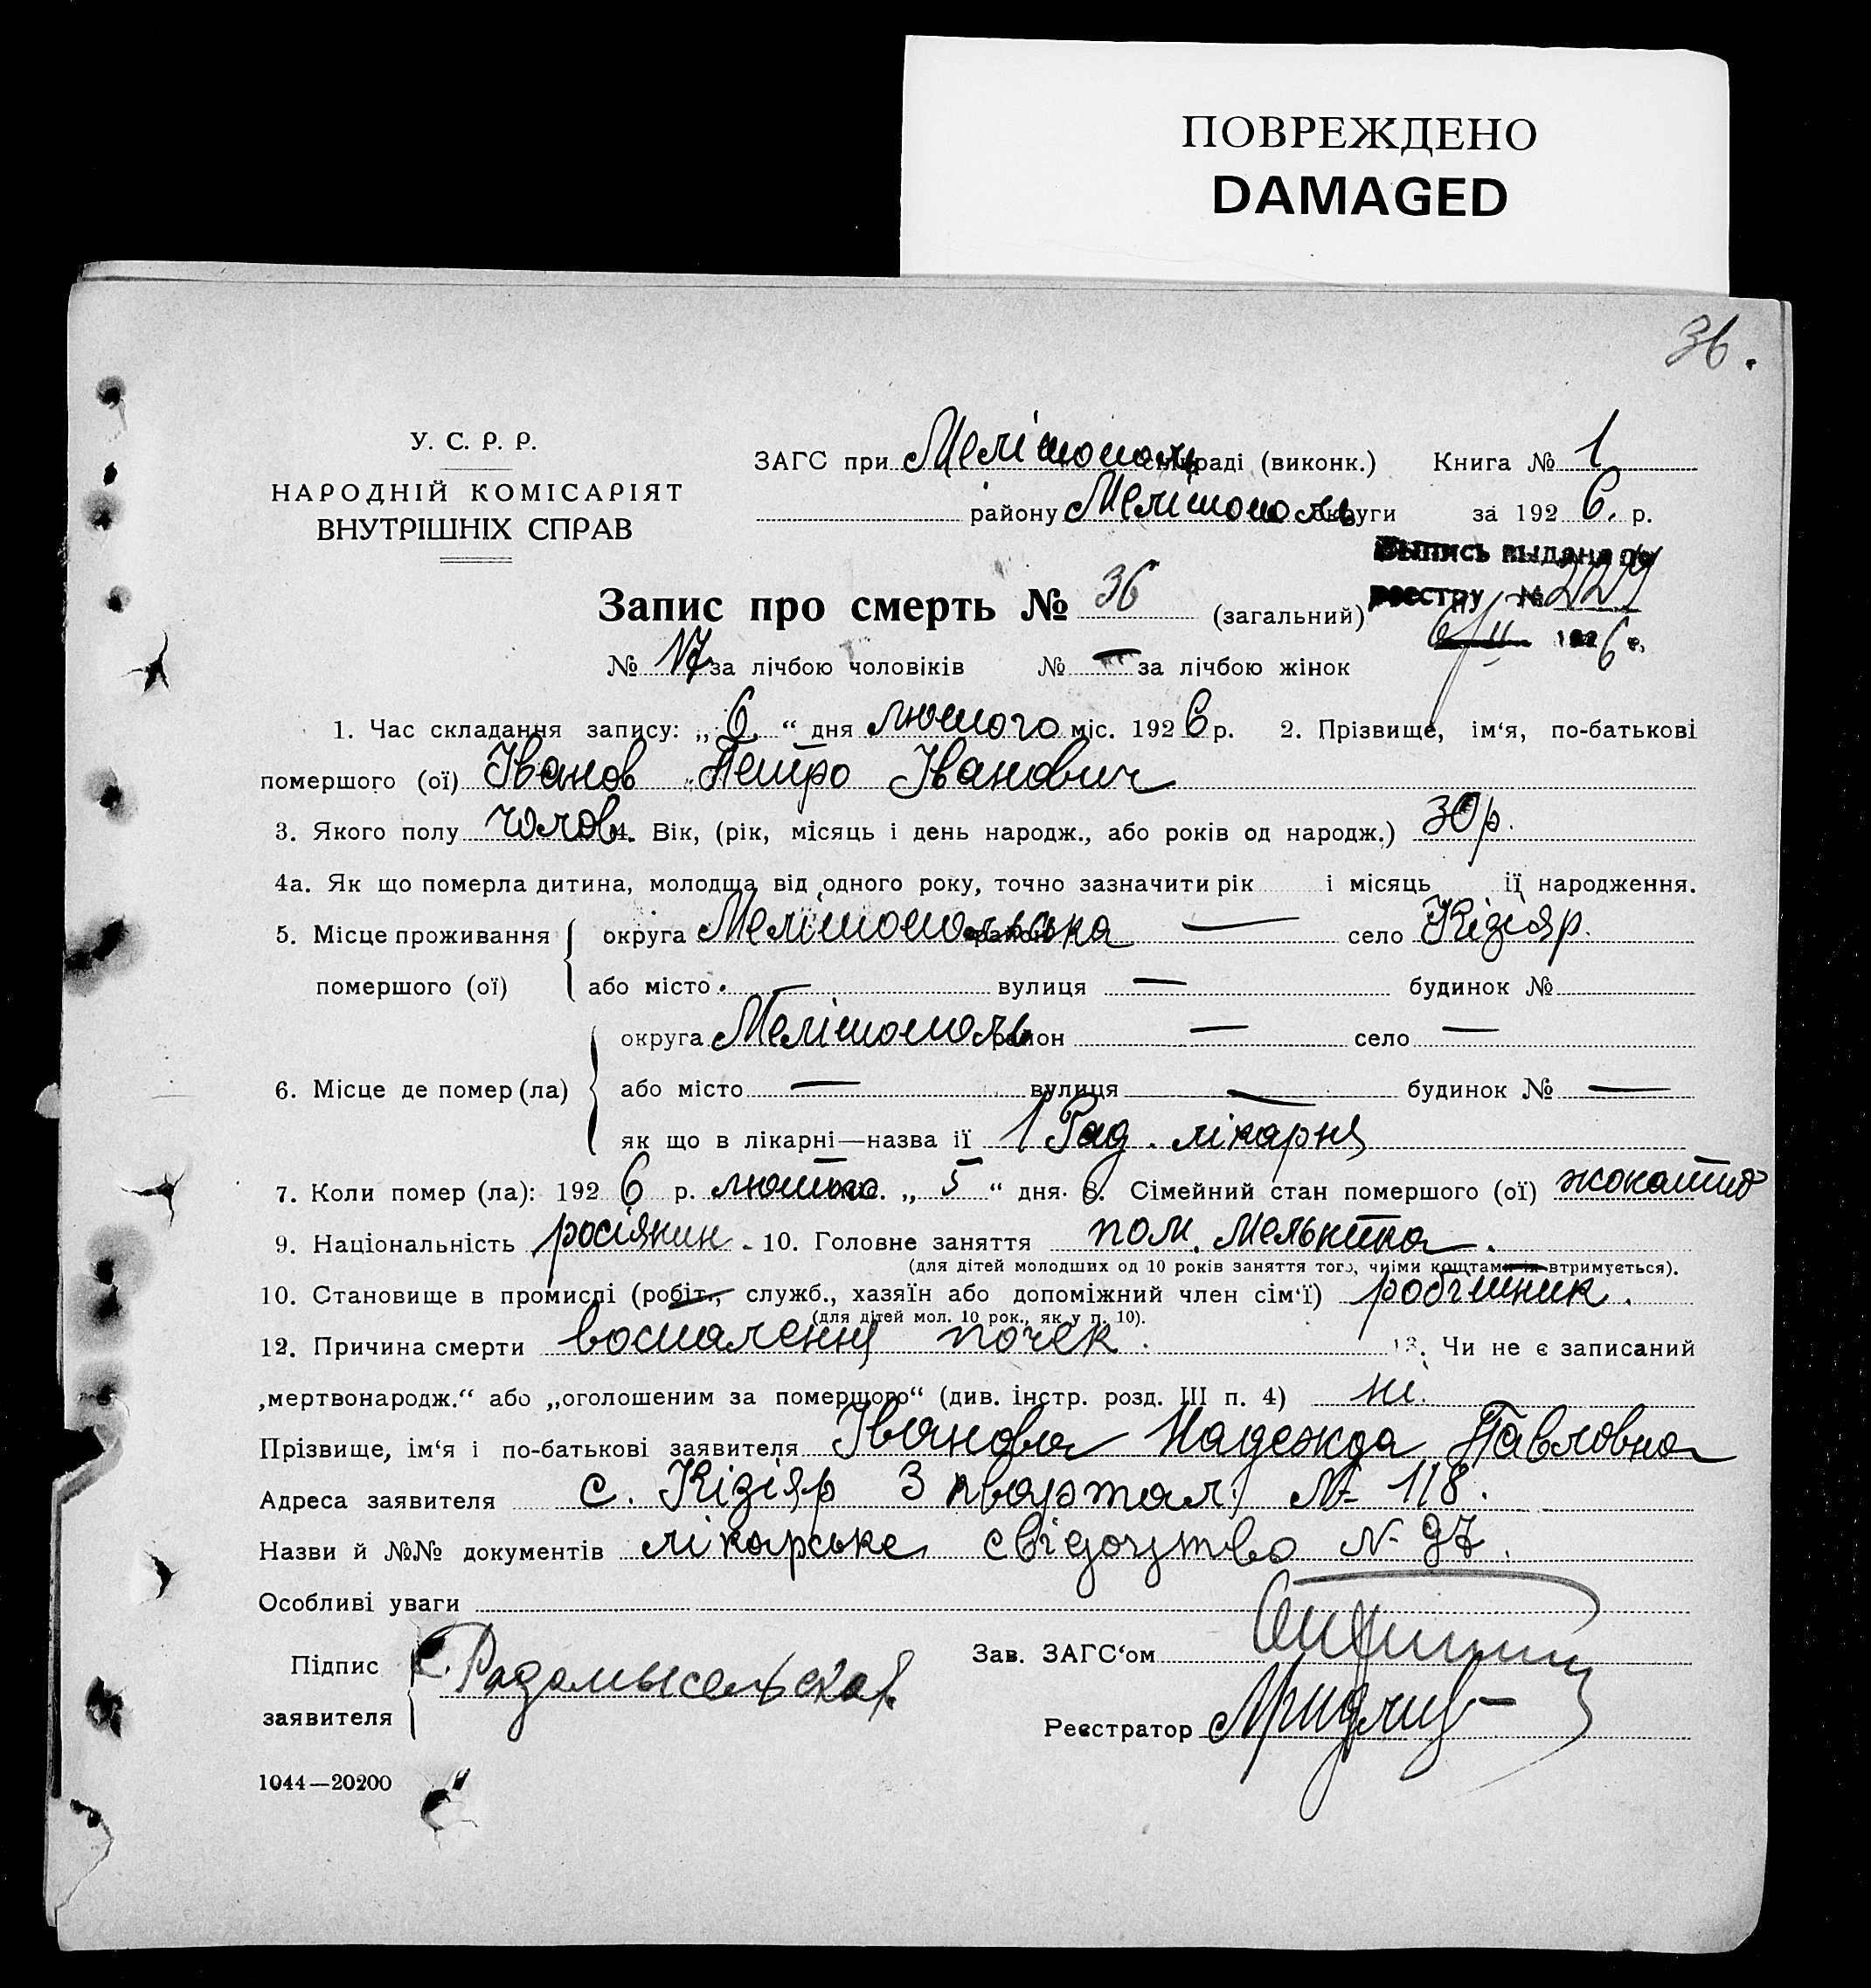 ПОВРЕЖДЕНО
DAMAGED
36.
У. С. Р. Р.
НАРОДНІЙ КОМІСАРІЯТ
ВНУТРІШНІХ СПРАВ
ЗАГС при Мелітополь сільраді (виконк.) Книга № 1
району Мелітополь округи за 1926. р.
Выпись выдана по
реестру № 2227
6/II 1926 г.
Запис про смерть № 36 (загальний)
№ 17 за лічбою чоловіків № — за лічбою жінок
1. Час складання запису: „6.“ дня лютого міс. 1926 р. 2. Прізвище, ім‘я, по-батькові
помершого (ої) Іванов Петро Іванович
3. Якого полу чолов. 4. Вік, (рік, місяць і день народж., або років од народж.) 30 р.
4а. Як що померла дитина, молодща від одного року, точно зазначити рік і місяць її народження.
5. Місце проживання помершого (ої) округа Мелітопольська район — село Кізіяр.
або місто — вулиця — будинок №
6. Місце де помер (ла) округа Мелітополь район — село —
або місто — вулиця — будинок № —
як що в лікарні—назва її 1 Рад. лікарня
7. Коли помер (ла): 1926 р. лютого „5“ дня. 8. Сімейний стан помершого (ої) жонатий
9. Національність росіянин. 10. Головне заняття пом. мельника.
(для дітей молодших од 10 років заняття того, чиїми коштами їх втримується).
10. Становище в промислі (робіт., служб., хазяїн або допоміжний член сім‘ї) робітник.
(для дітей мол. 10 рок., як у п. 10).
12. Причина смерти воспалення почек. 13. Чи не є записаний
„мертвонародж.“ або „оголошеним за померщого“ (див. інстр. розд. III п. 4) ні.
Прізвище, ім‘я і по-батькові заявителя Іванова Надежда Павловна
Адреса заявителя с. Кізіяр 3 квартал № 118.
Назви й №№ документів лікарське свідоцтво № 97.
Особливі уваги
Підпис заявителя Радомысельская
Зав. ЗАГС‘ом
Реєстратор
1044—20200